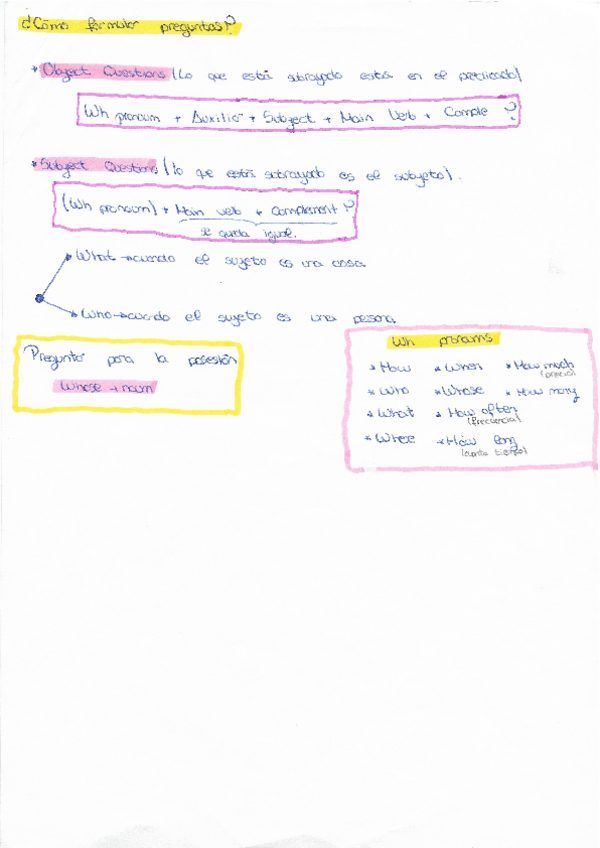 ¿Cómo formular preguntas?
* Object Questions (Lo que está subrayado está en el predicado)
Wh pronoum + Auxiliar + Subject + Main Verb + Comple ?
* Subject Questions (lo que está subrayado es el sujeto).
(Wh pronoum) + Main verb + Complement ?
se queda igual.
What → cuando el sujeto es una cosa
Who → cuando el sujeto es una persona
Preguntar para la posesión
Whose → noum
Wh pronoums
* How * When * How much
(precio)
* Who * Whose * How many
* What * How often
(frecuencia)
* Where * How long
(cuanto tiempo)